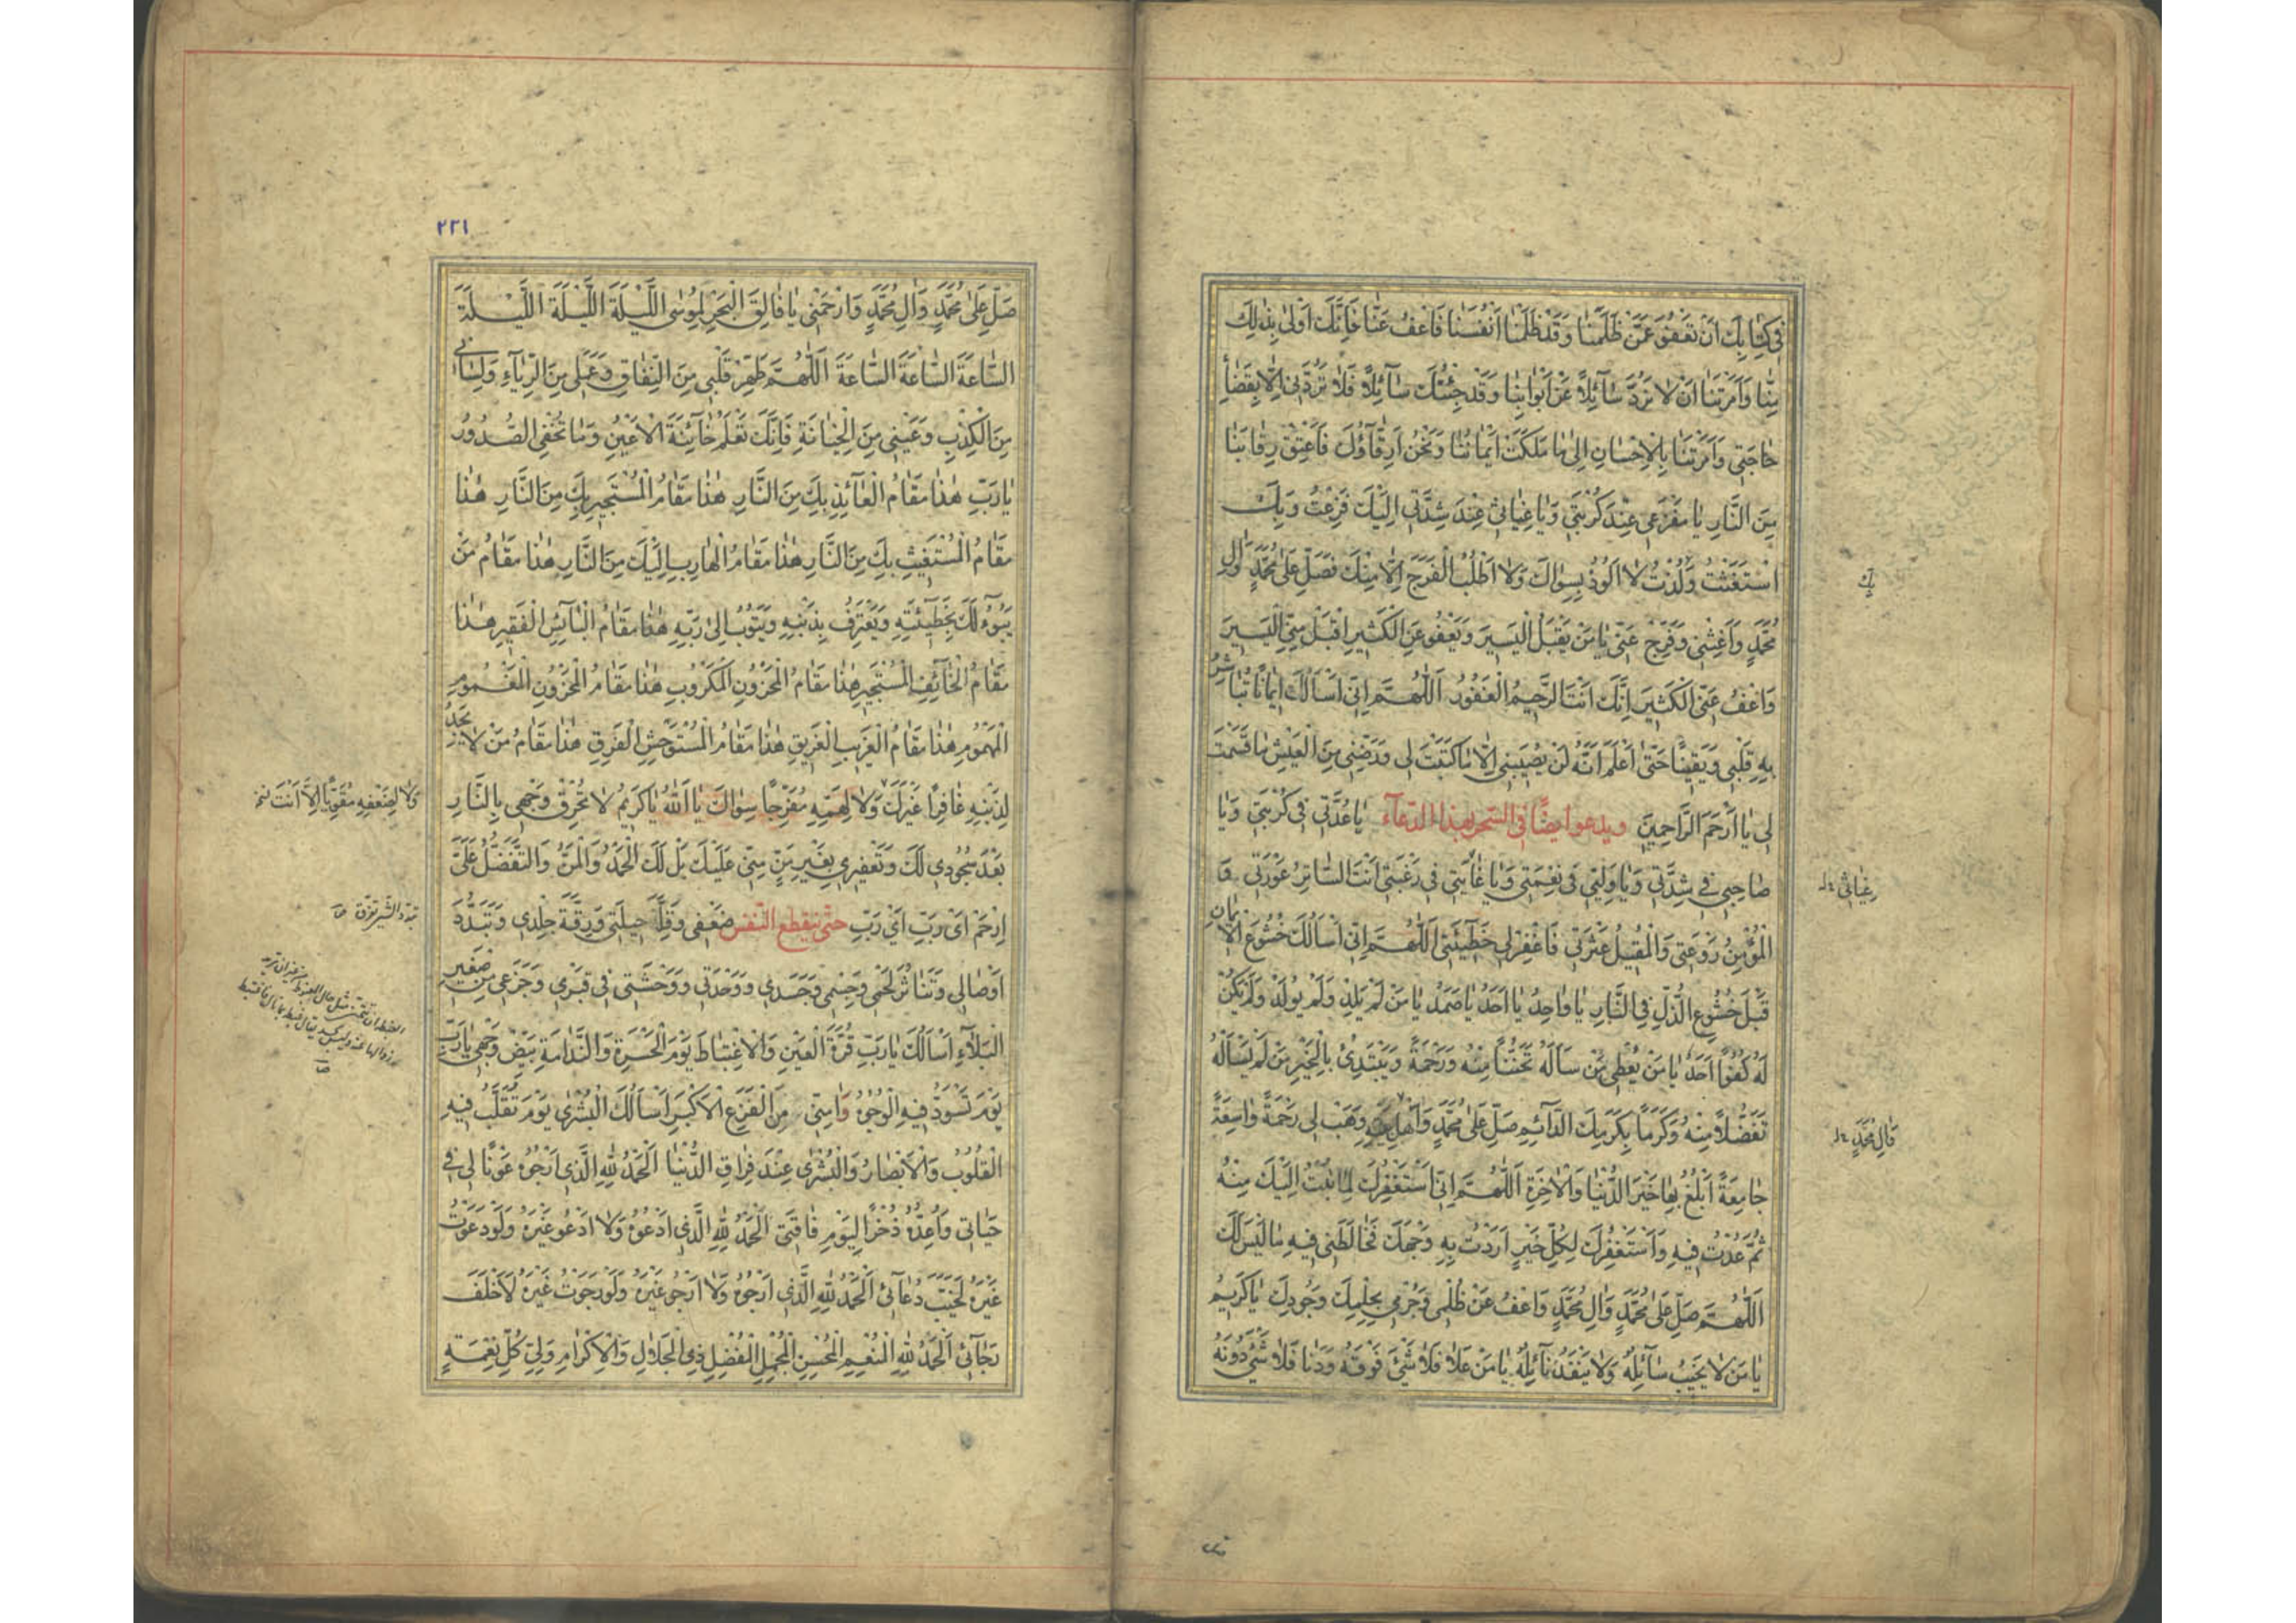 فِي كِتَابِكَ اَنْ نَعْفُوَ عَمَّنْ ظَلَمَنَا وَقَدْ ظَلَمْنَا اَنْفُسَنَا فَاعْفُ عَنَّا فَاِنَّكَ اَوْلىٰ بِذٰلِكَ
مِنَّا وَاَمَرْتَنَا اَنْ لَا نَرُدَّ سَآئِلاً عَنْ اَبْوَابِنَا وَقَدْ جِئْتُكَ سَآئِلاً فَلَا تَرُدَّنِى اِلَّا بِقَضَآءِ
حَاجَتِى وَاَمَرْتَنَا بِالْاِحْسَانِ اِلىٰ مَا مَلَكَتْ اَيْمَانُنَا وَنَحْنُ اَرِقَّآؤُكَ فَاَعْتِقْ رِقَابَنَا
مِنَ النَّارِ يَا مَفْزَعِى عِنْدَ كُرْبَتِى وَيَا غِيَاثِى عِنْدَ شِدَّتِى اِلَيْكَ فَزِعْتُ وَبِكَ
اسْتَغَثْتُ وَلُذْتُ لَا اَلُوذُ بِسِوَاكَ وَلَا اَطْلُبُ الْفَرَجَ اِلَّا مِنْكَ فَصَلِّ عَلىٰ مُحَمَّدٍ وَالِ
بِكَ
مُحَمَّدٍ وَاَغِثْنِى وَفَرِّجْ عَنِّى يَا مَنْ يَقْبَلُ الْيَسِيرَ وَيَعْفُو عَنِ الْكَثِيرِ اِقْبَلْ مِنِّى الْيَسِيرَ
وَاعْفُ عَنِّى الْكَثِيرَ اِنَّكَ اَنْتَ الرَّحِيمُ الْغَفُورُ اَللّٰهُمَّ اِنِّى اَسْاَلُكَ اِيمَانًا تُبَاشِرُ
بِهِ قَلْبِى وَيَقِينًا حَتّىٰ اَعْلَمَ اَنَّهُ لَنْ يُصِيبَنِى اِلَّا مَا كَتَبْتَ لِى وَرَضِّنِى مِنَ الْعَيْشِ بِمَا قَسَمْتَ
لِى يَا اَرْحَمَ الرَّاحِمِينَ ويدعو ايضًا فى السّحر بهذا الدّعآء يَا عُدَّتِى فِى كُرْبَتِى وَيَا
صَاحِبِى فِى شِدَّتِى وَيَا وَلِيِّى فِى نِعْمَتِى وَيَا غَايَتِى فِى رَغْبَتِى اَنْتَ السَّاتِرُ عَوْرَتِى وَ
غِيَاثِى
الْمُؤْمِنُ رَوْعَتِى وَالْمُقِيلُ عَثْرَتِى فَاغْفِرْ لِى خَطِيئَتِى اَللّٰهُمَّ اِنِّى اَسْاَلُكَ خُشُوعَ الْاِيمَانِ
قَبْلَ خُشُوعِ الذُّلِّ فِى النَّارِ يَا وَاحِدُ يَا اَحَدُ يَا صَمَدُ يَا مَنْ لَمْ يَلِدْ وَلَمْ يُولَدْ وَلَمْ يَكُنْ
لَهُ كُفُوًا اَحَدٌ يَا مَنْ يُعْطِى مَنْ سَاَلَهُ تَحَنُّنًا مِنْهُ وَرَحْمَةً وَيَبْتَدِئُ بِالْخَيْرِ مَنْ لَمْ يَسْاَلْهُ
تَفَضُّلاً مِنْهُ وَكَرَمًا بِكَرَمِكَ الدَّآئِمِ صَلِّ عَلىٰ مُحَمَّدٍ وَاَهْلِ بَيْتِهِ وَهَبْ لِى رَحْمَةً وَاسِعَةً
وَالِ مُحَمَّدٍ
جَامِعَةً اَبْلُغُ بِهَا خَيْرَ الدُّنْيَا وَالْاٰخِرَةِ اَللّٰهُمَّ اِنِّى اَسْتَغْفِرُكَ لِمَا تُبْتُ اِلَيْكَ مِنْهُ
ثُمَّ عُدْتُ فِيهِ وَاَسْتَغْفِرُكَ لِكُلِّ خَيْرٍ اَرَدْتُ بِهِ وَجْهَكَ فَخَالَطَنِى فِيهِ مَا لَيْسَ لَكَ
اَللّٰهُمَّ صَلِّ عَلىٰ مُحَمَّدٍ وَالِ مُحَمَّدٍ وَاعْفُ عَنْ ظُلْمِى وَجُرْمِى بِحِلْمِكَ وَجُودِكَ يَا كَرِيمُ
يَا مَنْ لَا يَخِيبُ سَآئِلُهُ وَلَا يَنْفَدُ نَآئِلُهُ يَا مَنْ عَلَا فَلَا شَىْءَ فَوْقَهُ وَدَنَا فَلَا شَىْءَ دُونَهُ
٢٣١
صَلِّ عَلىٰ مُحَمَّدٍ وَالِ مُحَمَّدٍ وَارْحَمْنِى يَا فَالِقَ الْبَحْرِ لِمُوسٰى اللَّيْلَةَ اللَّيْلَةَ اللَّيْلَةَ
السَّاعَةَ السَّاعَةَ السَّاعَةَ اَللّٰهُمَّ طَهِّرْ قَلْبِى مِنَ النِّفَاقِ وَعَمَلِى مِنَ الرِّيَآءِ وَلِسَانِى
مِنَ الْكِذْبِ وَعَيْنِى مِنَ الْخِيَانَةِ فَاِنَّكَ تَعْلَمُ خَآئِنَةَ الْاَعْيُنِ وَمَا تُخْفِى الصُّدُورُ
يَا رَبِّ هٰذَا مَقَامُ الْعَآئِذِ بِكَ مِنَ النَّارِ هٰذَا مَقَامُ الْمُسْتَجِيرِ بِكَ مِنَ النَّارِ هٰذَا
مَقَامُ الْمُسْتَغِيثِ بِكَ مِنَ النَّارِ هٰذَا مَقَامُ الْهَارِبِ اِلَيْكَ مِنَ النَّارِ هٰذَا مَقَامُ مَنْ
يَبُوءُ لَكَ بِخَطِيئَتِهِ وَيَعْتَرِفُ بِذَنْبِهِ وَيَتُوبُ اِلىٰ رَبِّهِ هٰذَا مَقَامُ الْبَآئِسِ الْفَقِيرِ هٰذَا
مَقَامُ الْخَآئِفِ الْمُسْتَجِيرِ هٰذَا مَقَامُ الْمَحْزُونِ الْمَكْرُوبِ هٰذَا مَقَامُ الْمَحْزُونِ الْمَغْمُومِ
الْمَهْمُومِ هٰذَا مَقَامُ الْغَرِيبِ الْغَرِيقِ هٰذَا مَقَامُ الْمُسْتَوْحِشِ الْفَرِقِ هٰذَا مَقَامُ مَنْ لَا يَجِدُ
لِذَنْبِهِ غَافِرًا غَيْرَكَ وَلَا لِهَمِّهِ مُفَرِّجًا سِوَاكَ يَا اَللّٰهُ يَا كَرِيمُ لَا تُحْرِقْ وَجْهِى بِالنَّارِ
وَلَا لِضَعْفِهِ مُقَوِّيًا اِلَّا اَنْتَ
بَعْدَ سُجُودِى لَكَ وَتَعْفِيرِى بِغَيْرِ مَنٍّ مِنِّى عَلَيْكَ بَلْ لَكَ الْحَمْدُ وَالْمَنُّ وَالتَّفَضُّلُ عَلَىَّ
اِرْحَمْ اَىْ رَبِّ اَىْ رَبِّ حتّى ينقطع النّفس ضَعْفِى وَقِلَّةَ حِيلَتِى وَرِقَّةَ جِلْدِى وَتَبَدُّدَ
تبدّد الشىء تفرّق
اَوْصَالِى وَتَنَاثُرَ لَحْمِى وَجِسْمِى وَجَسَدِى وَوَحْدَتِى وَوَحْشَتِى فِى قَبْرِى وَجَزَعِى مِنْ صَغِيرِ
الْبَلَآءِ اَسْاَلُكَ يَا رَبِّ قُرَّةَ الْعَيْنِ وَالْاِغْتِبَاطَ يَوْمَ الْحَسْرَةِ وَالنَّدَامَةِ بَيِّضْ وَجْهِى يَا رَبِّ
يَوْمَ تَسْوَدُّ فِيهِ الْوُجُوهُ وَاٰمِنِّى مِنَ الْفَزَعِ الْاَكْبَرِ اَسْاَلُكَ الْبُشْرٰى يَوْمَ تُقَلَّبُ فِيهِ
الْقُلُوبُ وَالْاَبْصَارُ وَالْبُشْرٰى عِنْدَ فِرَاقِ الدُّنْيَا اَلْحَمْدُ لِلّٰهِ الَّذِى اَرْجُوهُ عَوْنًا لِى فِى
حَيَاتِى وَاُعِدُّهُ ذُخْرًا لِيَوْمِ فَاقَتِى اَلْحَمْدُ لِلّٰهِ الَّذِى اَدْعُوهُ وَلَا اَدْعُو غَيْرَهُ وَلَوْ دَعَوْتُ
غَيْرَهُ لَخَيَّبَ دُعَآئِى اَلْحَمْدُ لِلّٰهِ الَّذِى اَرْجُوهُ وَلَا اَرْجُو غَيْرَهُ وَلَوْ رَجَوْتُ غَيْرَهُ لَاَخْلَفَ
رَجَآئِى اَلْحَمْدُ لِلّٰهِ الْمُنْعِمِ الْمُحْسِنِ الْمُجْمِلِ الْمُفْضِلِ ذِى الْجَلَالِ وَالْاِكْرَامِ وَلِىِّ كُلِّ نِعْمَةٍ